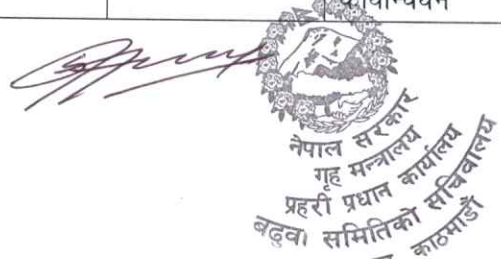 कार्यान्वयन
नेपाल सरकार
गृह मन्त्रालय
प्रहरी प्रधान कार्यालय
बढुवा समितिको सचिवालय
काठमाडौं